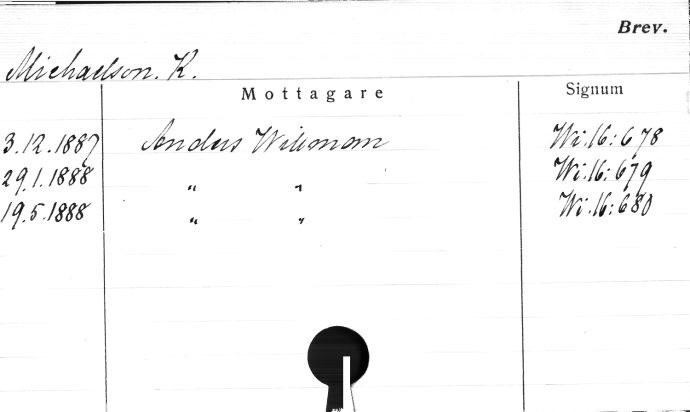 Brev.
Michaelson. K.
Mottagare Signum
3.12.1887 Anders Wikman Wi.16:678
29.1.1888 " " Wi.16:679
19.5.1888 " " Wi.16:680